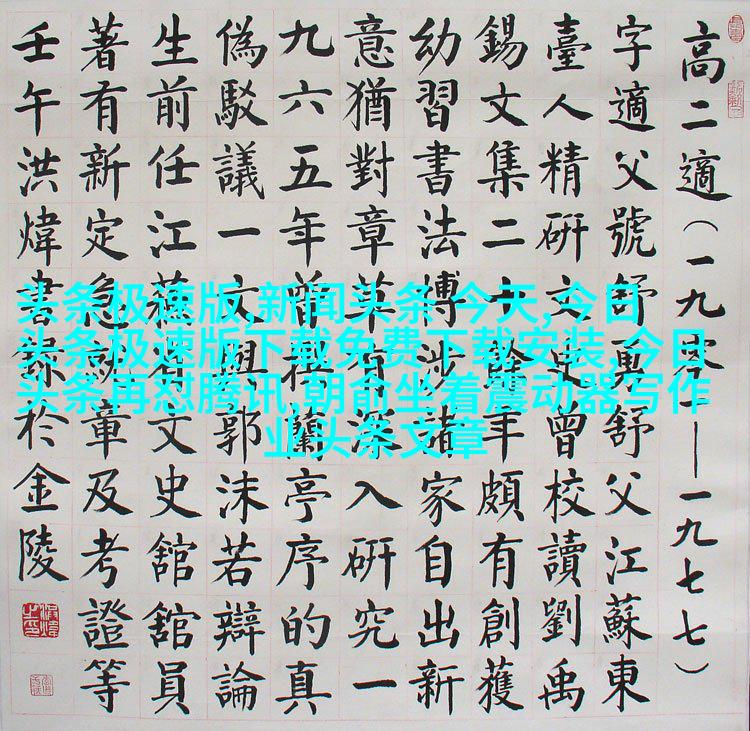 高二適（一九零——一九七七）
字適父號舒舒父江蘇東
臺人精研文史曾校讀劉禹
錫文集二十餘年頗有創獲
幼習書法博涉諸家自出新
意猶對章草有深入研究一
九六五年曾撰蘭亭序的真
偽駁議一文與郭沫若辯論
生前任江蘇省文史館館員
著有新定急就章及考證等
壬午洪煒書錄於金陵
头条极速版,新闻头条 今天,今日
头条极速版下载免费下载安装,今日
头条再怼腾讯,朝俞坐着震动器写作
业头条文章